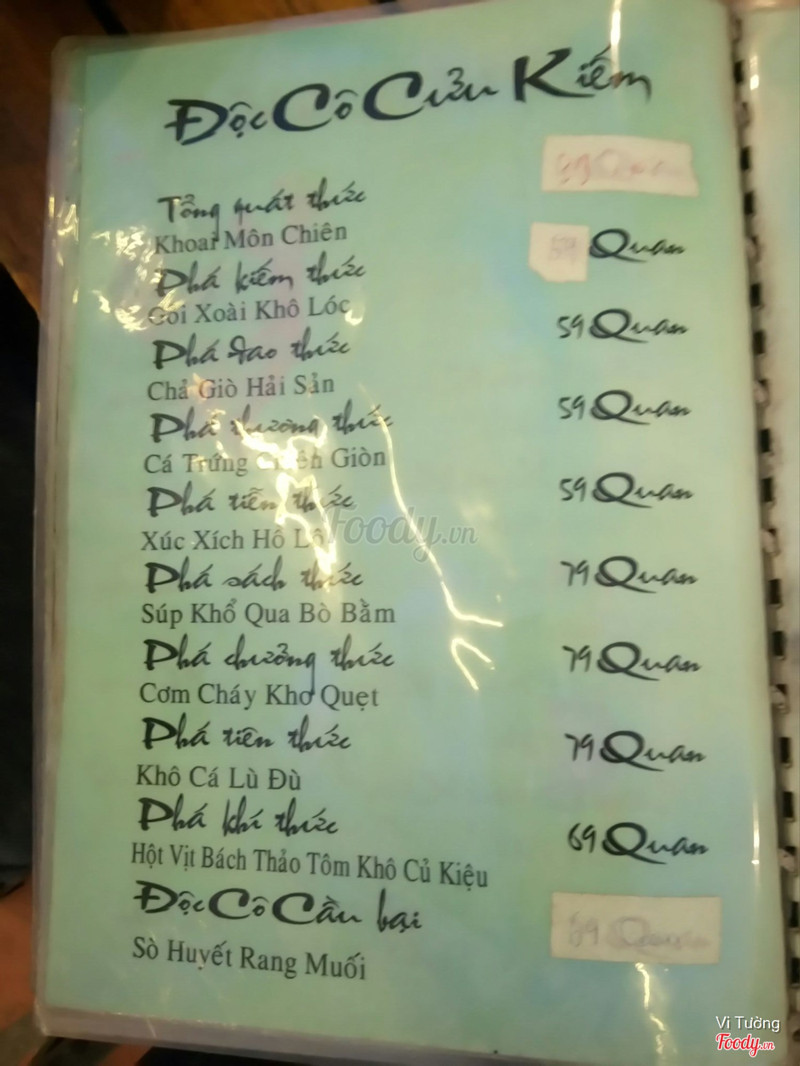 Độc Cô Cửu Kiếm
Tổng quát thức
Khoai Môn Chiên
Quan
Phá kiếm thức
Gỏi Xoài Khô Lóc
59 Quan
Phá đao thức
Chả Giò Hải Sản
59 Quan
Phá thương thức
Cá Trứng Chiên Giòn
59 Quan
Phá tiễn thức
Xúc Xích Hồ Lô
79 Quan
Phá sách thức
Súp Khổ Qua Bò Bằm
79 Quan
Phá chưởng thức
Cơm Cháy Kho Quẹt
79 Quan
Phá tiên thức
Khô Cá Lù Đù
69 Quan
Phá khí thức
Hột Vịt Bách Thảo Tôm Khô Củ Kiệu
Độc Cô Cầu bại
Sò Huyết Rang Muối
Foody.vn
Vi Tường
Foody.vn